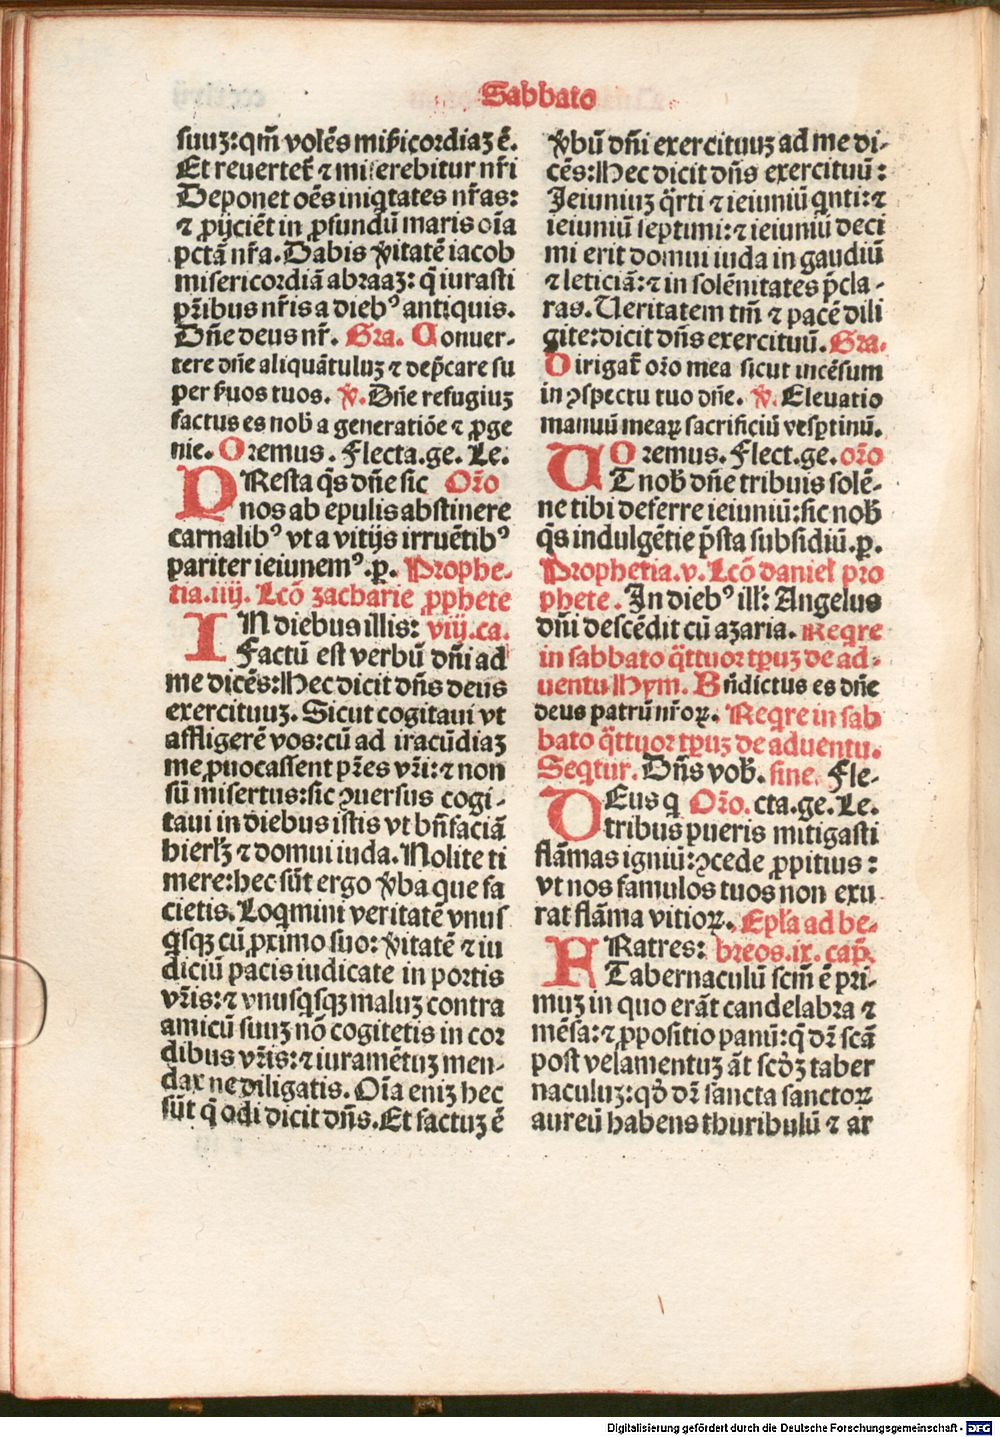 Sabbato
suuꝫ: qm̄ volēs mis̄icordiaꝫ ē.
Et reuertet̄ ⁊ miserebitur nr̄i
Deponet oēs iniqͥtates nr̄as:
⁊ ꝓijciēt in ꝓfundū maris oīa
pctā nr̄a. Dabis ṽitatē iacob
misericordiā abraaꝫ: q̄ iurasti
pr̄ibus nr̄is a diebꝰ antiquis.
Dn̄e deus nr̄. Gra. Conuer-
tere dn̄e aliquātuluꝫ ⁊ dep̄care su
per s̄uos tuos. ℣. Dn̄e refugiuꝫ
factus es nob̄ a generatiōe ⁊ ꝓge
nie. Oremus. Flecta. ge. Le.
PResta q̄s dn̄e sic Or̄o
nos ab epulis abstinere
carnalibꝰ vt a vitijs irruētibꝰ
pariter ieiunemꝰ. ꝑ. Prophe-
tia. iiij. Lcō zacharie ꝓphete
IN diebus illis: viij. ca.
Factū est verbū dn̄i ad
me dicēs: Hec dicit dn̄s deus
exercituuꝫ. Sicut cogitaui vt
affligerē vos: cū ad iracūdiaꝫ
me ꝓuocassent pr̄es vr̄i: ⁊ non
sū misertus: sic ꝯuersus cogi-
taui in diebus istis vt bn̄faciā
hierlꝫ ⁊ domui iuda. Nolite ti
mere: hec sūt ergo ṽba que fa
cietis. Loqͥmini veritatē vnus
qͥsqꝫ cū ꝓximo suo: ṽitatē ⁊ iu
diciū pacis iudicate in portis
vr̄is: ⁊ vnusqͥsqꝫ maluꝫ contra
amicū suuꝫ nō cogitetis in cor
dibus vr̄is: ⁊ iuramētuꝫ men-
dax ne diligatis. Oīa eniꝫ hec
sūt q̄ odi dicit dn̄s. Et factuꝫ ē
ṽbū dn̄i exercituuꝫ ad me di-
cēs: Hec dicit dn̄s exercituū:
Ieiuniuꝫ q̄rti ⁊ ieiuniū qͥnti: ⁊
ieiuniū septimi: ⁊ ieiuniū deci
mi erit domui iuda in gaudiū
⁊ leticiā: ⁊ in solēnitates p̄cla-
ras. Ueritatem tm̄ ⁊ pacē dili
gite: dicit dn̄s exercituū. Gra.
Dirigat̄ or̄o mea sicut incēsum
in ꝯspectu tuo dn̄e. ℣. Eleuatio
manuū meaꝝ sacrificiū vesꝑtinū.
Oremus. Flect. ge. or̄o
UT nob̄ dn̄e tribuis solē-
ne tibi deferre ieiuniū: sic nob̄
q̄s indulgētie p̄sta subsidiū. ꝑ.
Prophetia. v. Lcō daniel̄ pro
phete. In diebꝰ ill̄: Angelus
dn̄i descēdit cū azaria. Reqͥre
in sabbato q̄ttuor tꝑuꝫ de ad-
uentu Hym. Bn̄dictus es dn̄e
deus patrū nr̄oꝝ. Reqͥre in sab
bato q̄ttuor tꝑuꝫ de aduentu.
Seqͥtur. Dn̄s vob̄. sine. Fle-
DEus qͥ Or̄o. cta. ge. Le.
tribus pueris mitigasti
flāmas igniū: ꝯcede ꝓpitius:
vt nos famulos tuos non exu
rat flāma vitioꝝ. Epl̄a ad he-
FRatres: breos. ix. cap̄.
Tabernaculū scm̄ ē pri-
muꝫ in quo erāt candelabra ⁊
mēsa: ⁊ ꝓpositio panū: q̄ dr̄ scā
post velamentuꝫ āt scd̄ꝫ taber
naculuꝫ: qd̄ dr̄ sancta sanctoꝝ
aureū habens thuribulū ⁊ ar
Digitalisierung gefördert durch die Deutsche Forschungsgemeinschaft - DFG